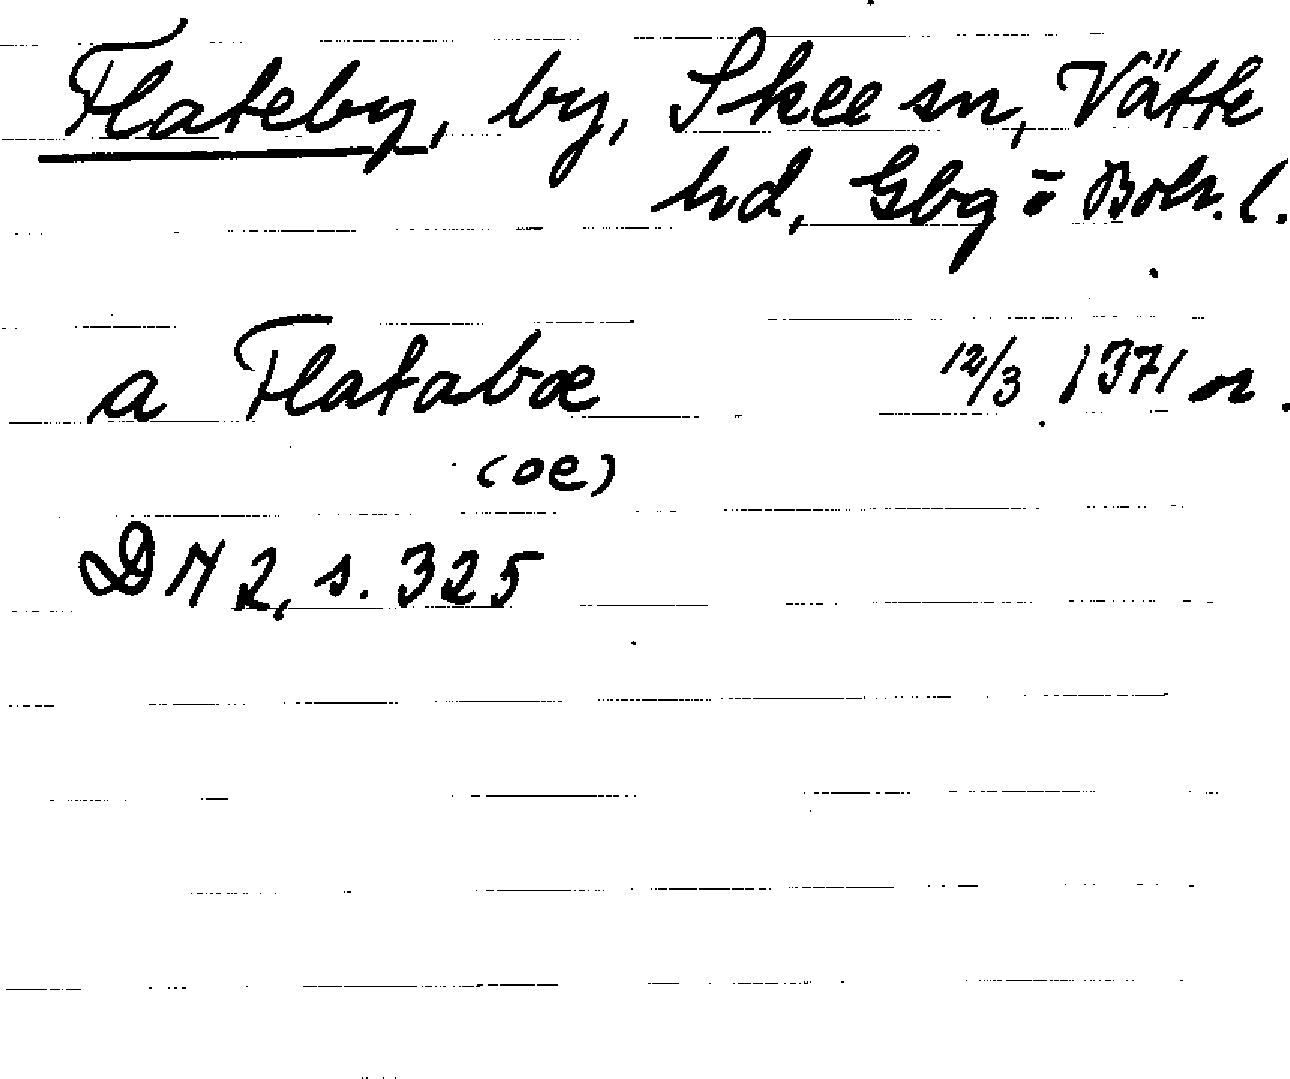 Flateby, by, Skee sn, Vätte
hd, Gbg o Boh. l.
a Flatabœ 12/3 1371 or.
(oe)
DN 2, s. 325